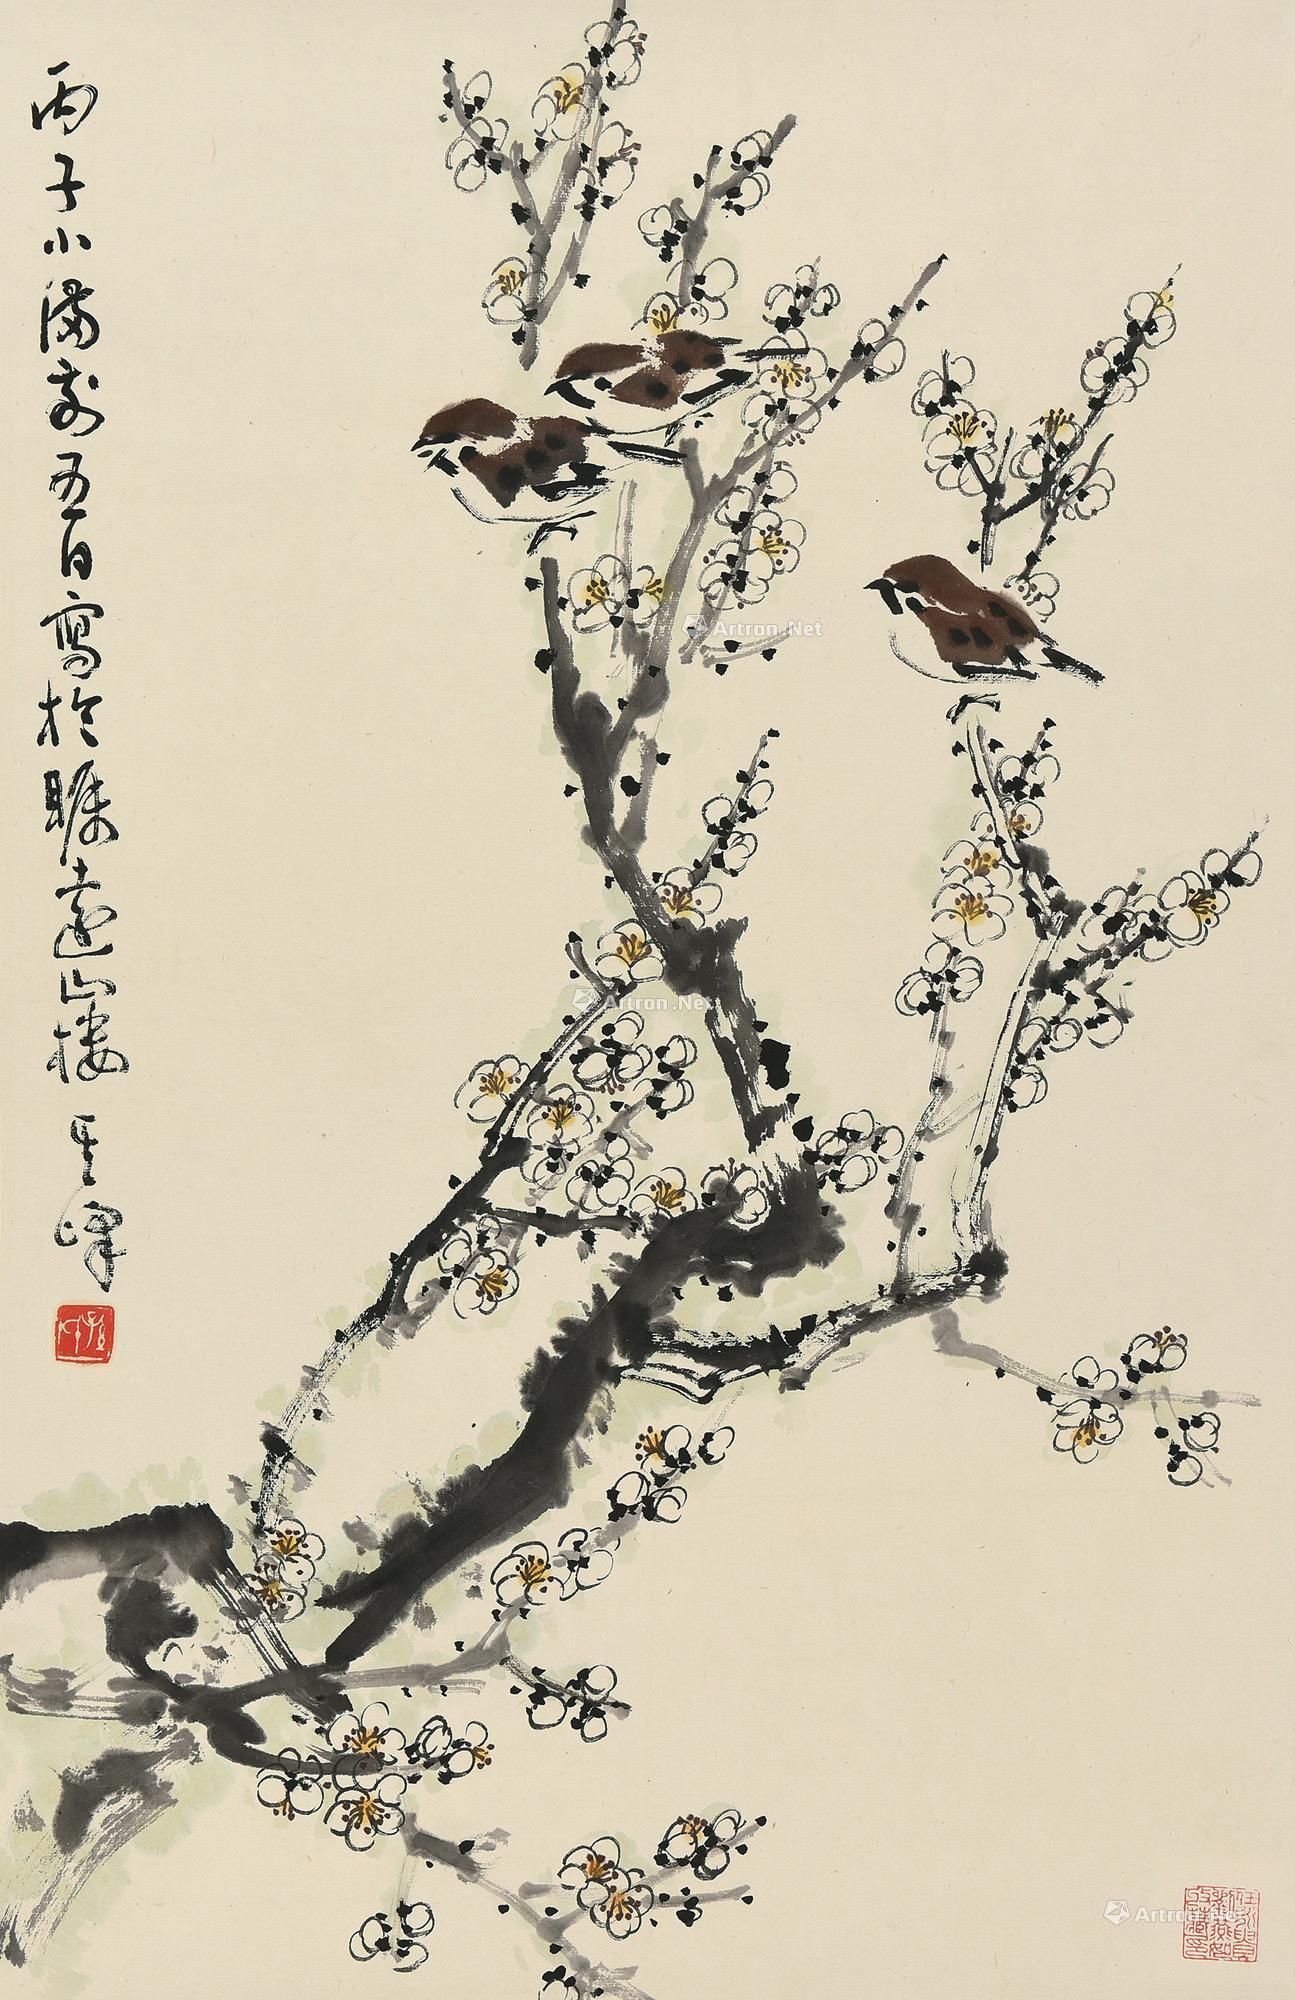 丙子小满前五日写於眺远山楼其峰
Artron.Net
Artron.Net
Artron.Net